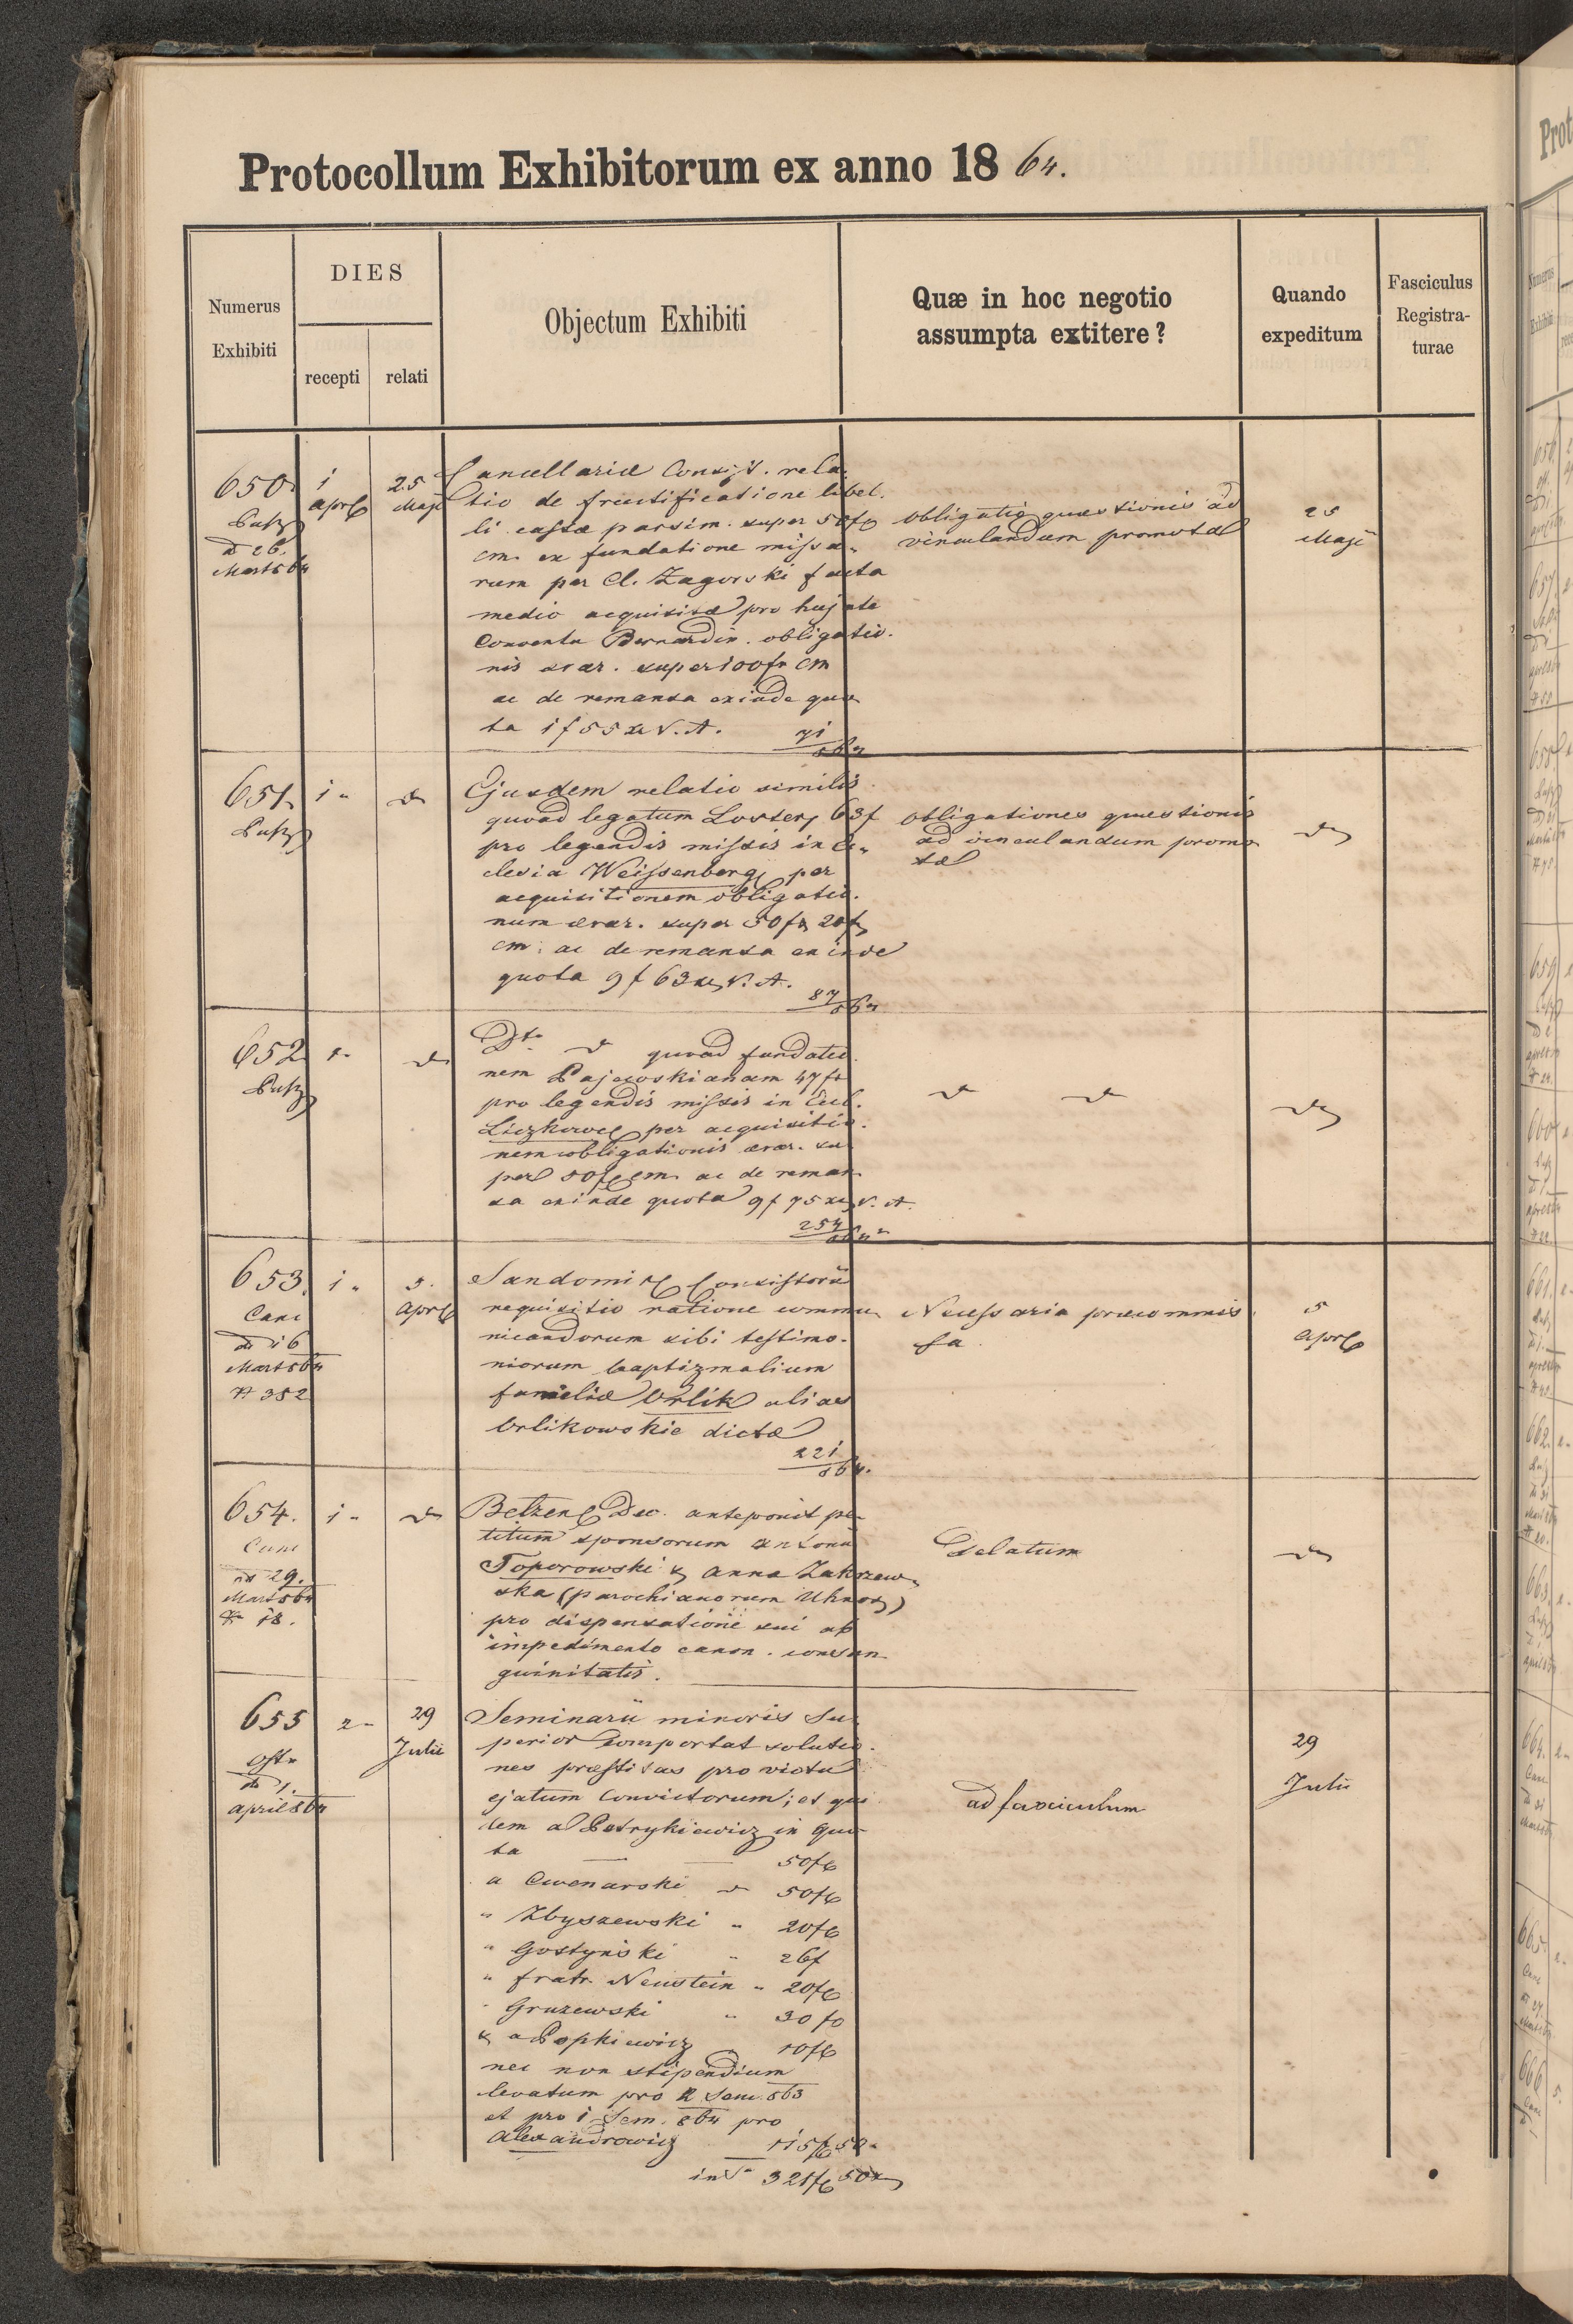 Protocollum Exhibitorum ex anno 18 64.
Numerus Exhibiti
DIES
recepti
relati
Objectum Exhibiti
Quæ in hoc negotio assumpta extitere?
Quando expeditum
Fasciculus Registra-turae
650
1 April
25 Maji
d 26.
Mart 864
Cancellariæ Consist. rela-
tio de fructificatione libel-
li cassæ parsim. super 50 f
cm. ex fundatione missa-
rum per Cl. Zagorski facta
medio acquisitæ pro hujate
Conventu Bernardin. obligatio-
nis aerar. super 100 fr cm
ac de remansa exinde quo-
ta 1 f 55 x V. A.
71/864
obligatio quæstionis ad
vinculandum promota
25
Maji
651
1 "
Ejusdem relatio similis
quoad legatum 63 f
pro legendis missis in Ec-
clesia Weissenberg per
acquisitionem obligatio-
num aerar. super 50 f & 20 f
cm: ac de remansa exinde
quota 9 f 63 x V. A.
87/864
obligationes quæstionis
ad vinculandum promo
tæ
652
1 "
Dto quoad fundatio-
nem Pajewskianam 47 fr
pro legendis missis in Eccl.
Liczkowce per acquisitio-
nem obligationis aerar. su-
per 50 f cm. ac de reman-
sa exinde quota 9 f 75 x V. A.
254/864
653.
1 "
5.
April
d 16
Mart 864
N 352
Sandomir Consistorii
requisitio ratione commu-
nicandorum sibi testimo-
niorum baptizmalium
familiæ Orlik alias
Orlikowskie dictæ
221/864.
Necessaria præcommis-
sa
5
April
654.
1 "
d 29.
Mart 864
N 18.
Betzen Dec. anteponit pe-
titum sponsorum Antonii
Toporowski & Anna Zakrzew-
ska (parochianorum Uhnov)
pro dispensatione sui ab
impedimento canon. consan
guinitatis.
Delatum
655
2 "
29
Julii
d 1.
April 864
Seminarii minoris Su-
perior comportat solutio-
nes præstitas pro victu
ejatum Convictorum; et qui-
dem a Petrykiewicz in quo-
ta 50 f
a Cwenarski 50 f
" Zbyszewski " 20 f
" Gostyński " 26 f
" fratr. Neustein " 20 f
" Gruzewski " 30 f
& a Popkiewicz 10 f
nec non stipendium
levatum pro 2 Sem. 863
et pro 1 Sem. 864 pro
Alexandrowicz 115 f 50 "
in S. 321 f 50 x
ad fasciculum
29
Julii